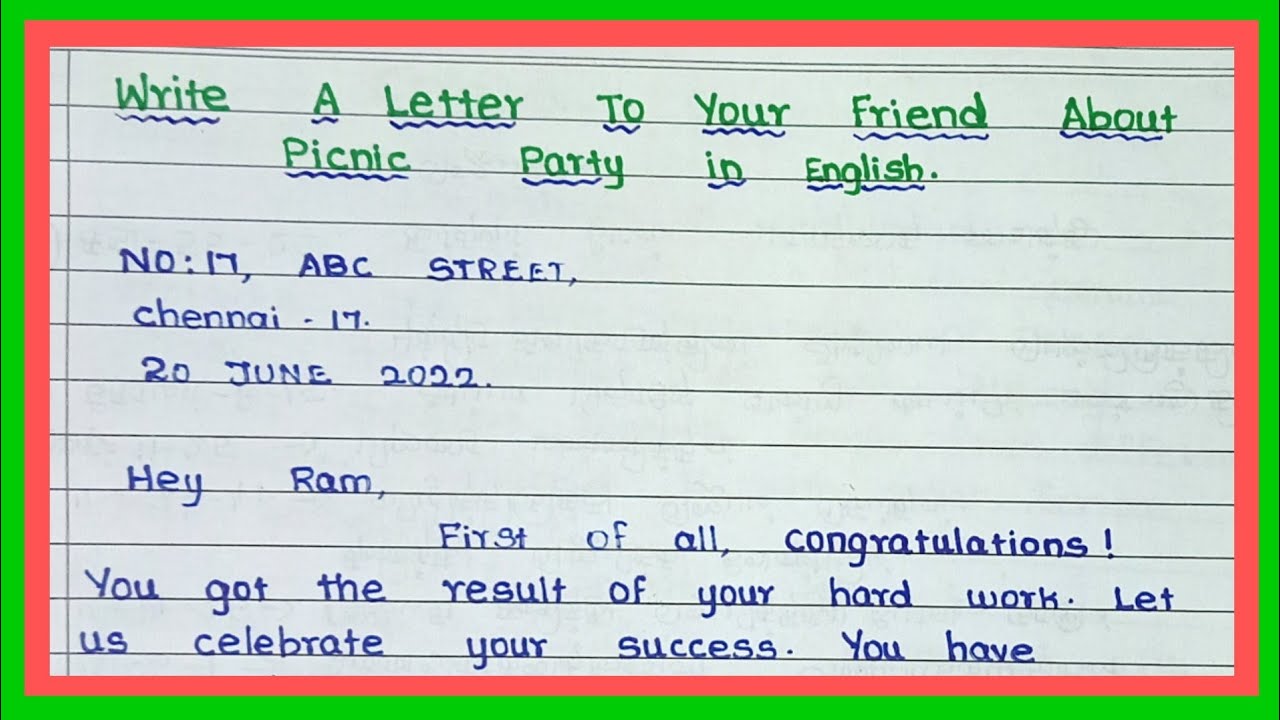 Write A Letter To Your Friend About
Picnic Party in English.
NO: 17, ABC STREET,
Chennai - 17.
20 JUNE 2022.
Hey Ram,
First of all, congratulations!
You got the result of your hard work. Let
us celebrate your success. You have